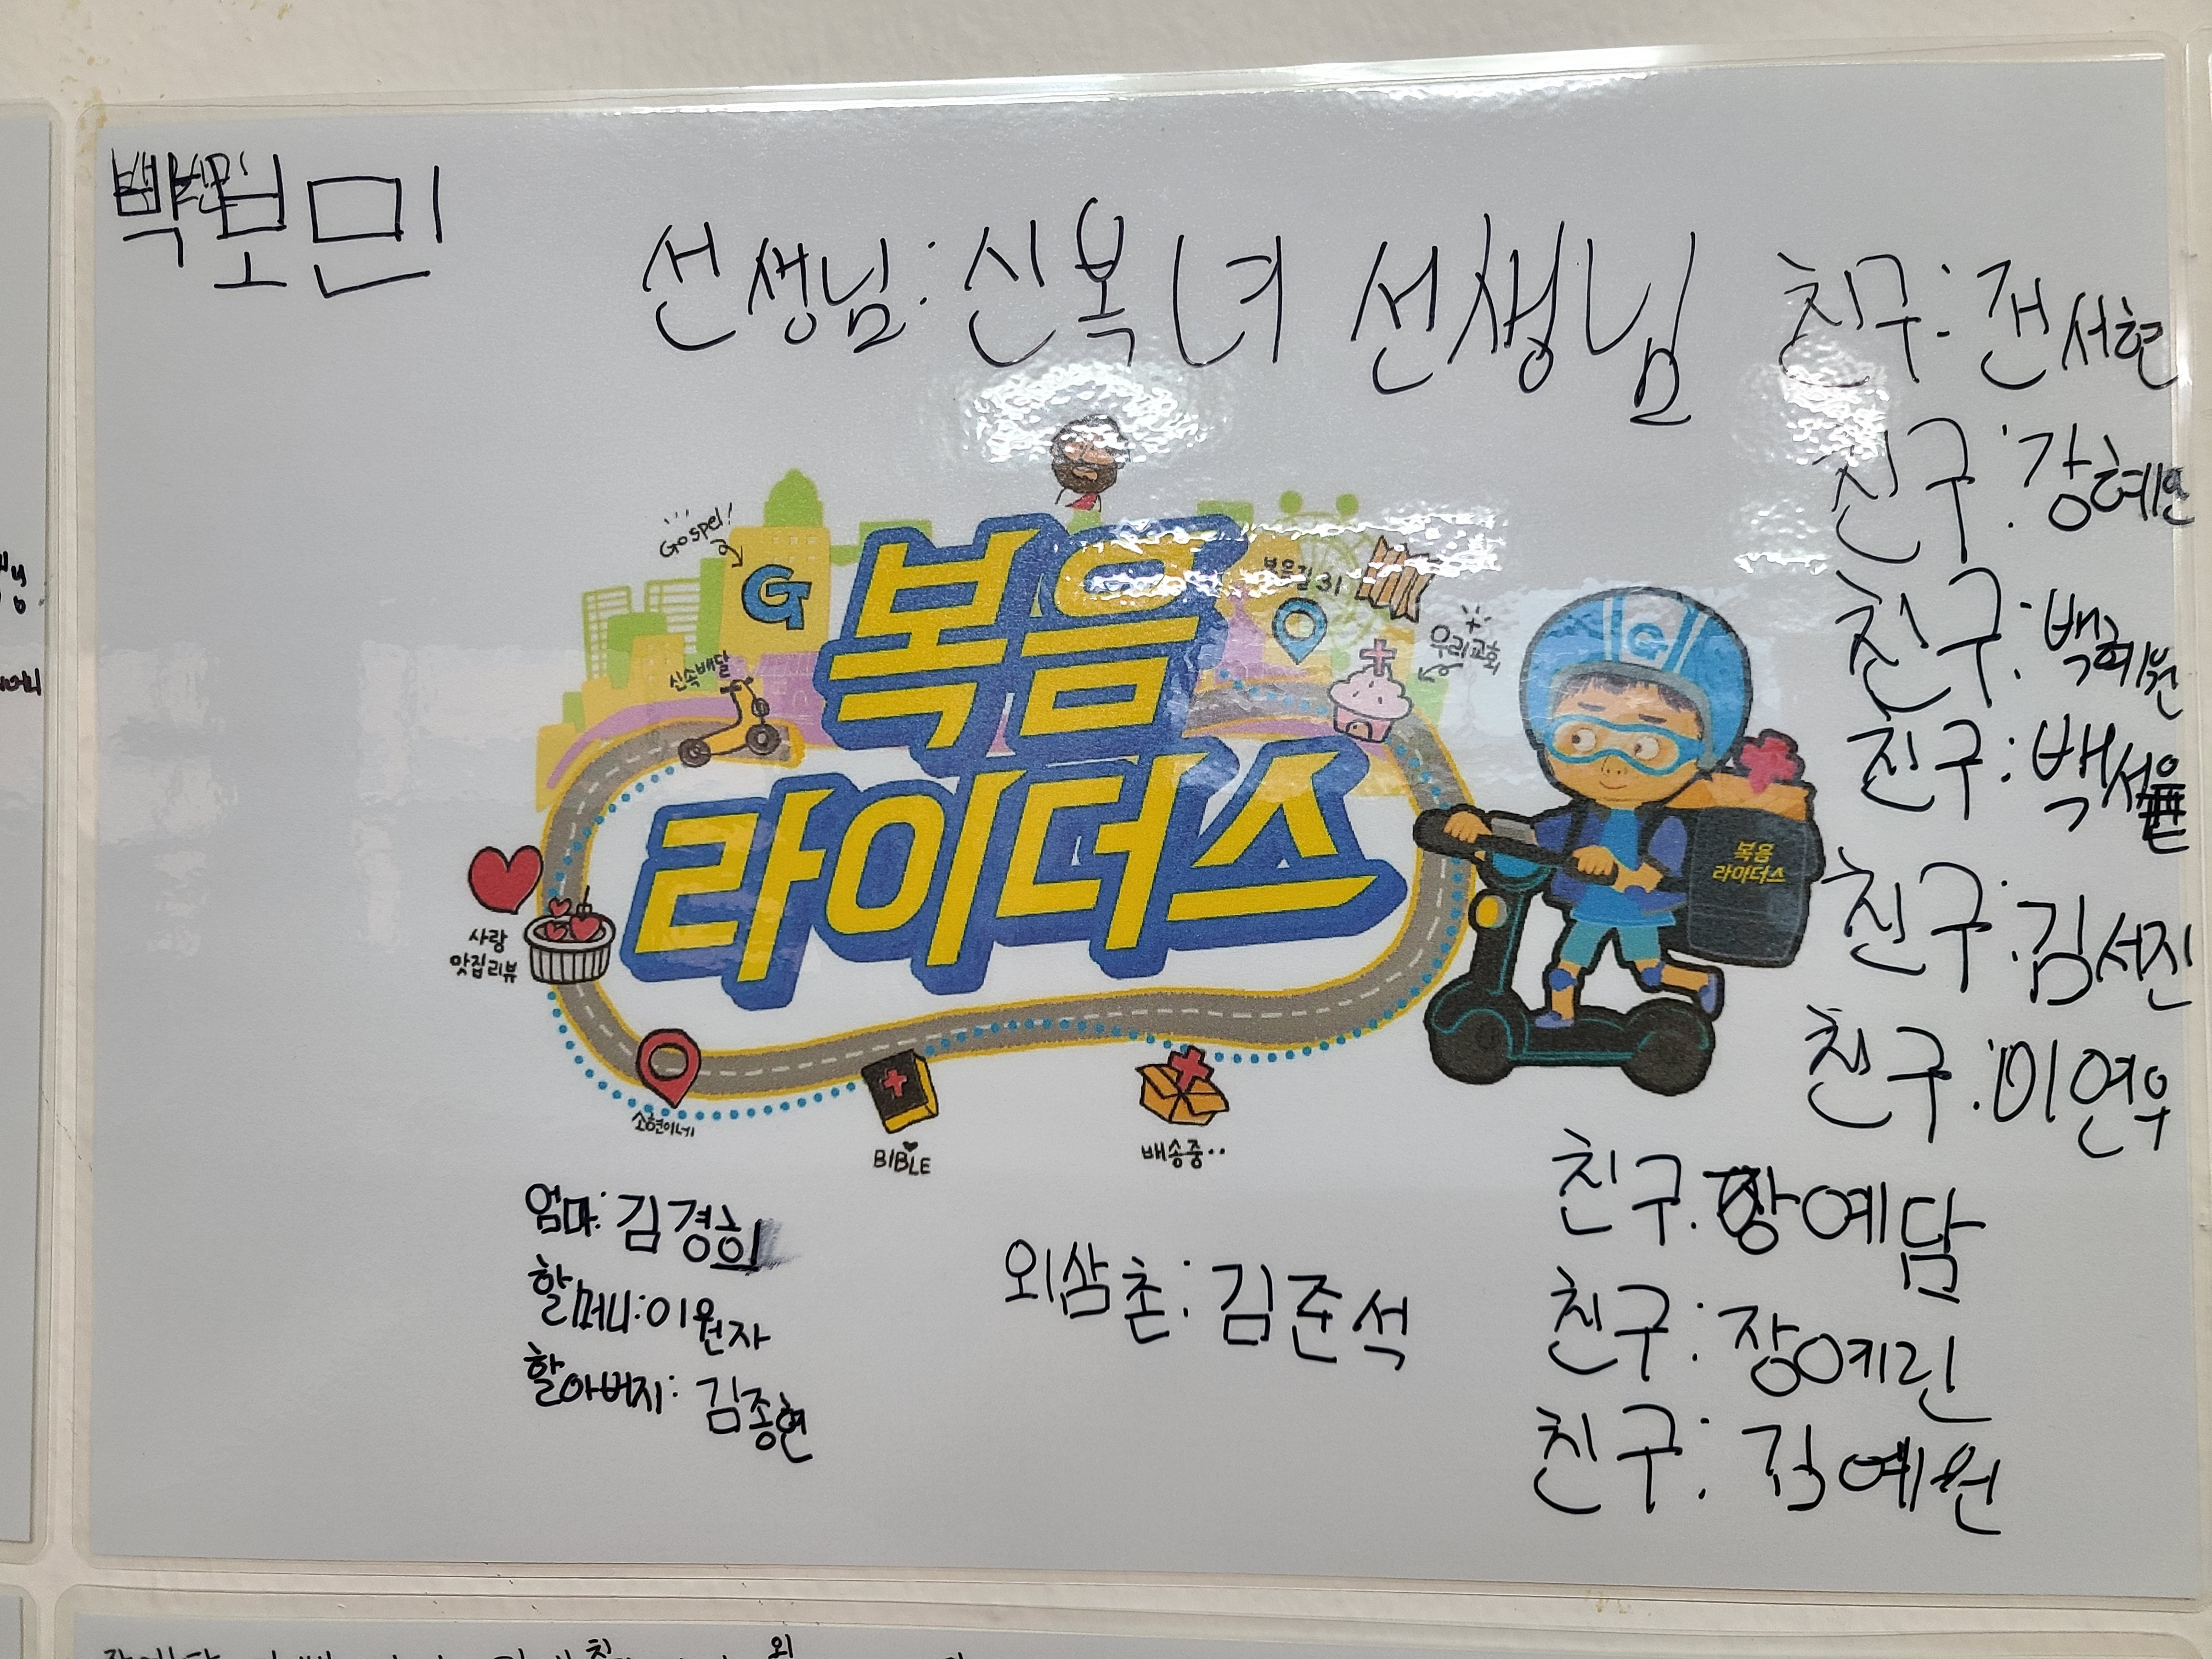 백보민
선생님: 신복녀 선생님
친구: 전서현
친구: 강혜인
친구: 백혜원
친구: 백서율
친구: 김서진
친구: 이연우
친구: 장예담
친구: 장예린
친구: 김예원
Gospel!
G
복음길 31
우리교회
신속배달
복음
라이더스
G
복음
라이더스
사랑
맛집리뷰
소현이네
BIBLE
배송중..
엄마: 김경희
할머니: 이원자
할아버지: 김종현
외삼촌: 김준석